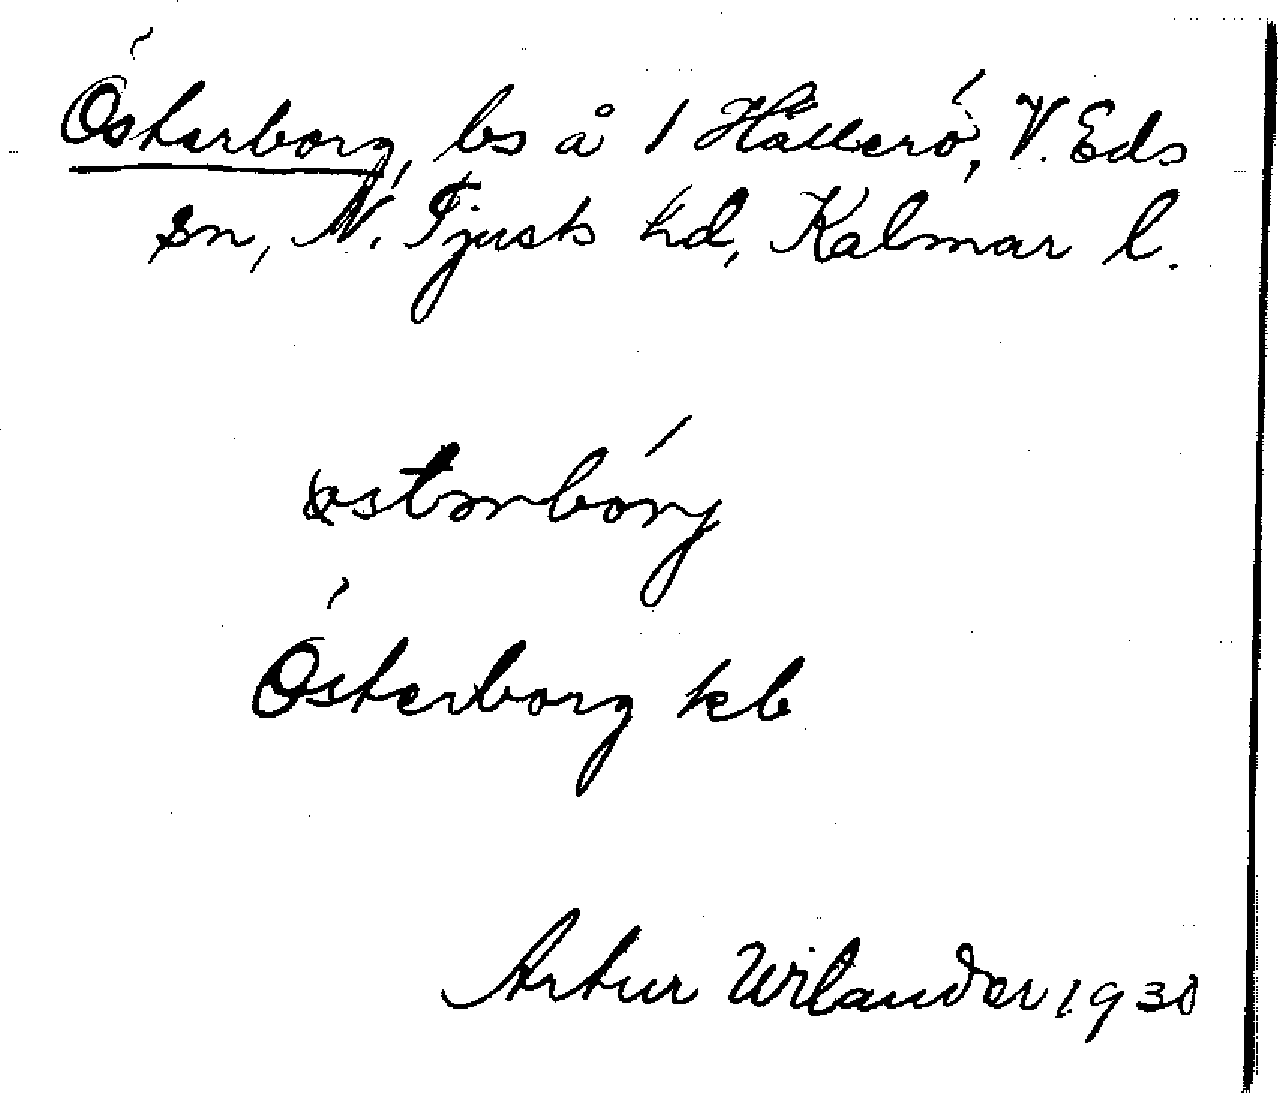 Österborg, ls å 1 Hällerö, V. Eds
sn, N. Tjusts hd, Kalmar l.
Österborg kb
Artur Wilander 1930